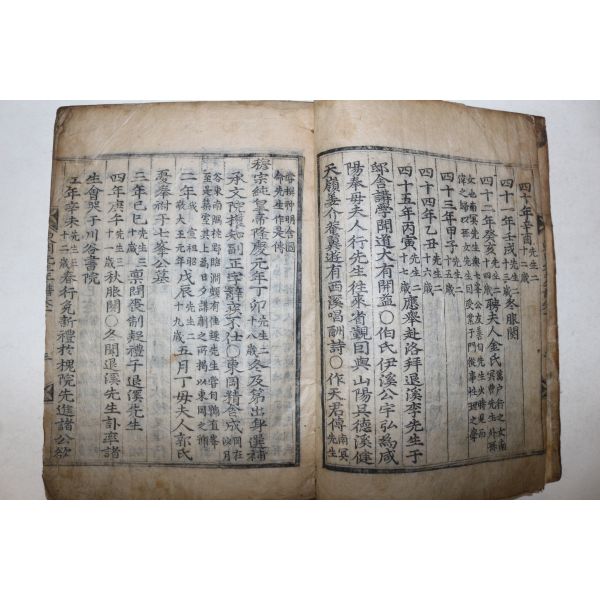 四十年辛酉先生二十二歲
四十一年壬戌先生二十三歲冬服闋
四十二年癸亥先生二十四歲聘夫人金氏
四十三年甲子先生二十五歲
四十四年乙丑先生二十六歲
四十五年丙寅先生二十七歲應擧赴洛拜退溪李先生于
邸舍講學聞道大有開益○伯氏伊溪公宇弘爲咸
陽奉母夫人行先生往來省觀因與山陽吳德溪健
天嶺姜介菴翼遊有西溪唱酬詩○作天君傳南冥先生
嘗撰神明舍圖命先生作是傳
穆宗純皇帝隆慶元年丁卯先生二十八歲冬及第出身選補
承文院權知副正字辭疾不仕○東岡精舍成
二年戊辰先生二十九歲五月丁母夫人郭氏
憂擧祔于七峯公墓
三年己巳先生三十歲稟問喪制疑禮于退溪先生
四年庚午先生三十一歲秋服闋○冬聞退溪先生訃率諸
生會哭于川谷書院
五年辛未先生三十二歲春行免新禮於槐院先進諸公